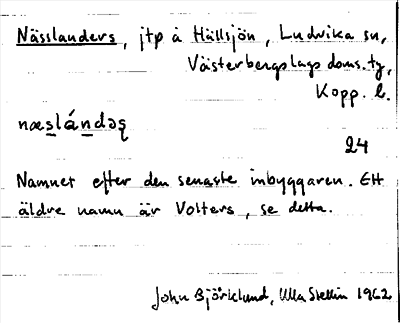 Nässlanders, jtp å Hällsjön, Ludvika sn,
Västerbergslags doms. ty,
Kopp. l.
næslándəş
24
Namnet efter den senaste inbyggaren. Ett
äldre namn är Volters, se detta.
John Björklund, Ulla Stellin 1962